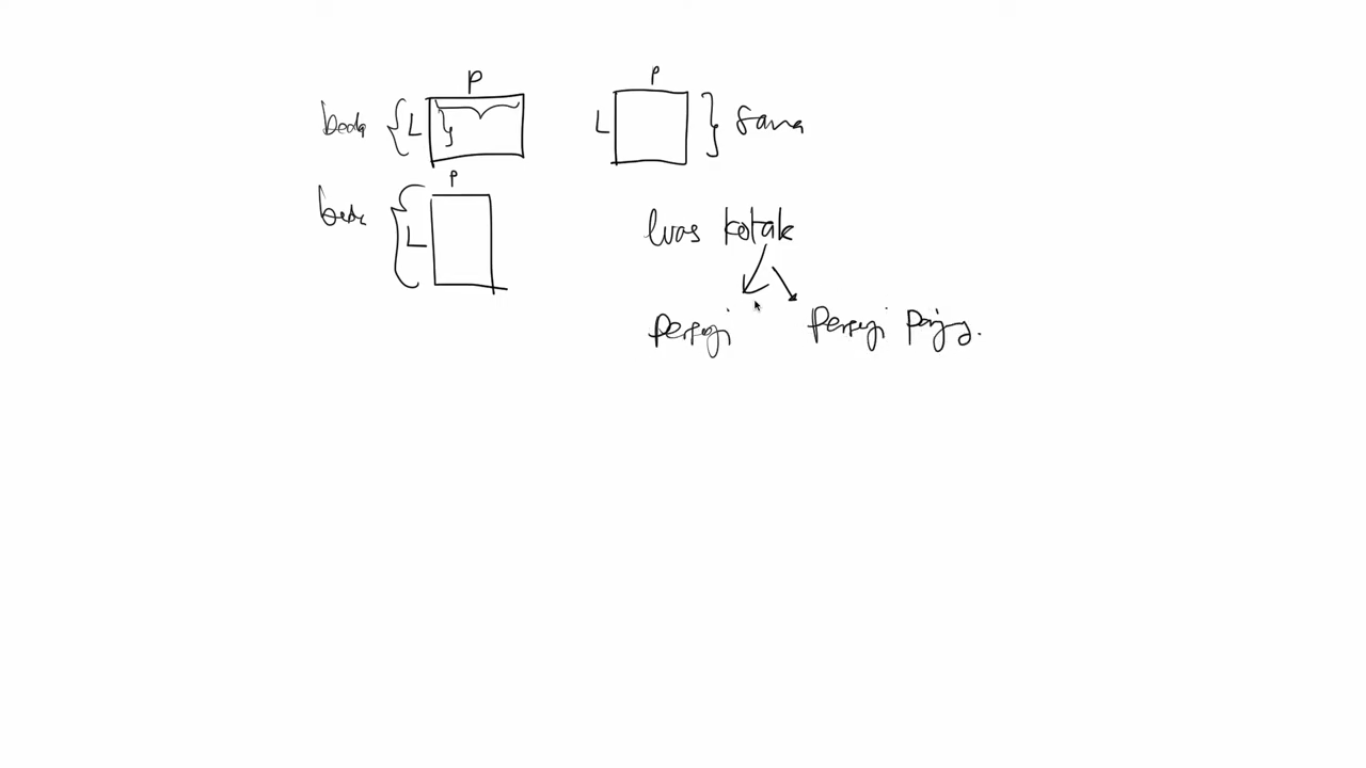 P
beda L
P
L sama
P
beda L
luas kotak
persegi persegi panjang.